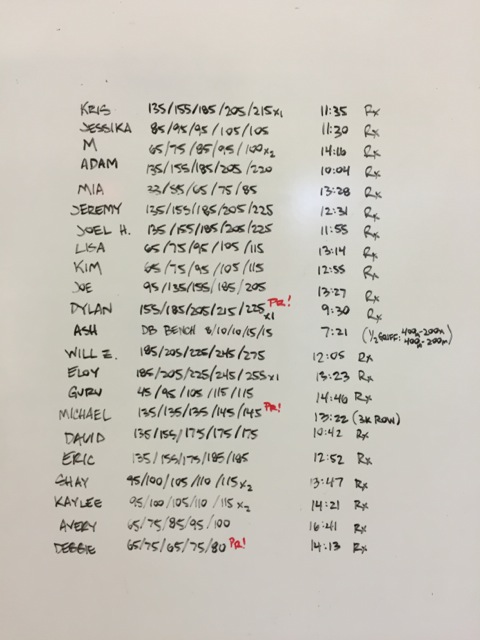 KRIS 135/155/185/205/215x1 11:35 Rx
JESSIKA 85/95/95/105/105 11:30 Rx
M 65/75/85/95/100x2 14:16 Rx
ADAM 135/155/185/205/220 10:04 Rx
MIA 33/55/65/75/85 13:28 Rx
JEREMY 135/155/185/205/225 12:31 Rx
JOEL H. 135/155/185/205/225 11:55 Rx
LISA 65/75/95/105/115 13:14 Rx
KIM 65/75/95/105/115 12:55 Rx
JOE 95/135/155/185/205 13:27 Rx
DYLAN 155/185/205/215/225x1 PR! 9:30 Rx
ASH DB BENCH 8/10/10/15/15 7:21 (1/2 GRIFF: 400m-200m
400m-200m)
WILL E. 185/205/225/245/275 12:05 Rx
ELOY 185/205/225/245/255x1 13:23 Rx
GURU 45/95/105/115/115 14:46 Rx
MICHAEL 135/135/135/145/145 PR! 13:22 (3K ROW)
DAVID 135/155/175/175/175 10:42 Rx
ERIC 135/155/175/185/185 12:52 Rx
SHAY 95/100/105/110/115x2 13:47 Rx
KAYLEE 95/100/105/110/115x2 14:21 Rx
AVERY 65/75/85/95/100 16:41 Rx
DEBBIE 65/75/65/75/80 PR! 14:13 Rx